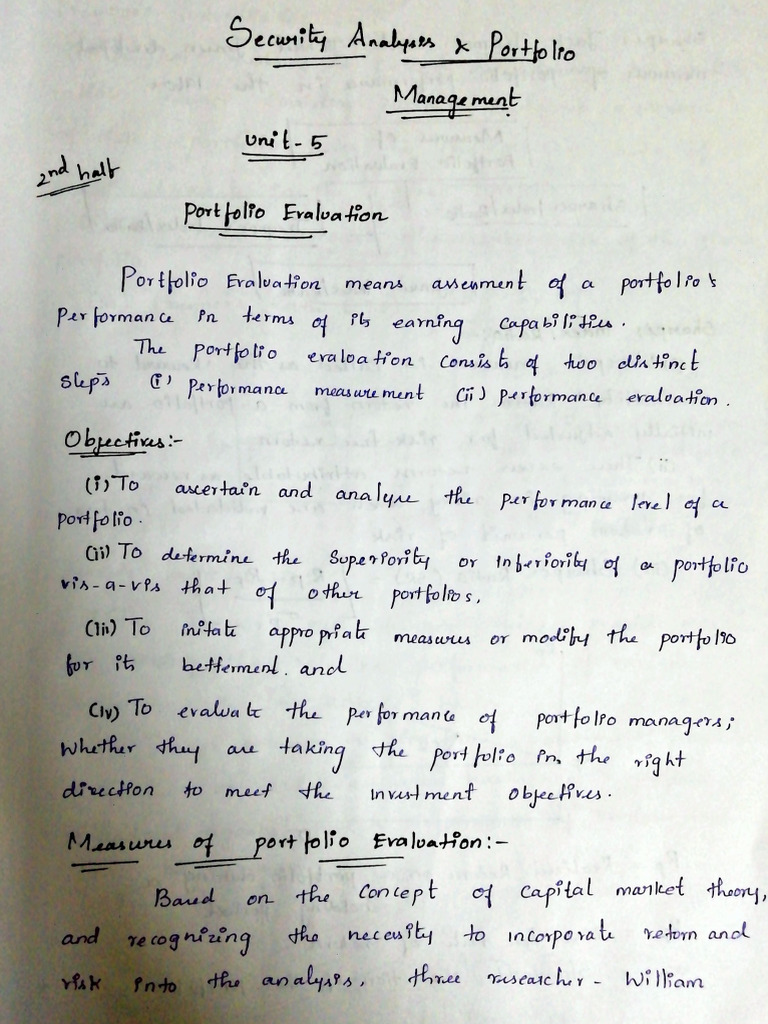 Security Analysis & Portfolio
Management
Unit - 5
2nd half
Portfolio Evaluation
Portfolio Evaluation means assesment of a portfolio's
performance in terms of its earning capabilities.
The portfolio evaluation consists of two distinct
steps (i) performance measurement (ii) performance evaluation.
Objectives:-
(i) To ascertain and analyse the performance level of a
portfolio.
(ii) To determine the superiority or inferiority of a portfolio
vis-a-vis that of other portfolios,
(iii) To initate appropriate measures or modify the portfolio
for its betterment. and
(iv) To evaluate the performance of portfolio managers;
whether they are taking the portfolio in the right
direction to meet the investment objectives.
Measures of portfolio Evaluation:-
Based on the concept of capital market theory,
and recognizing the necesity to incorporate return and
risk into the analysis, three researcher - William